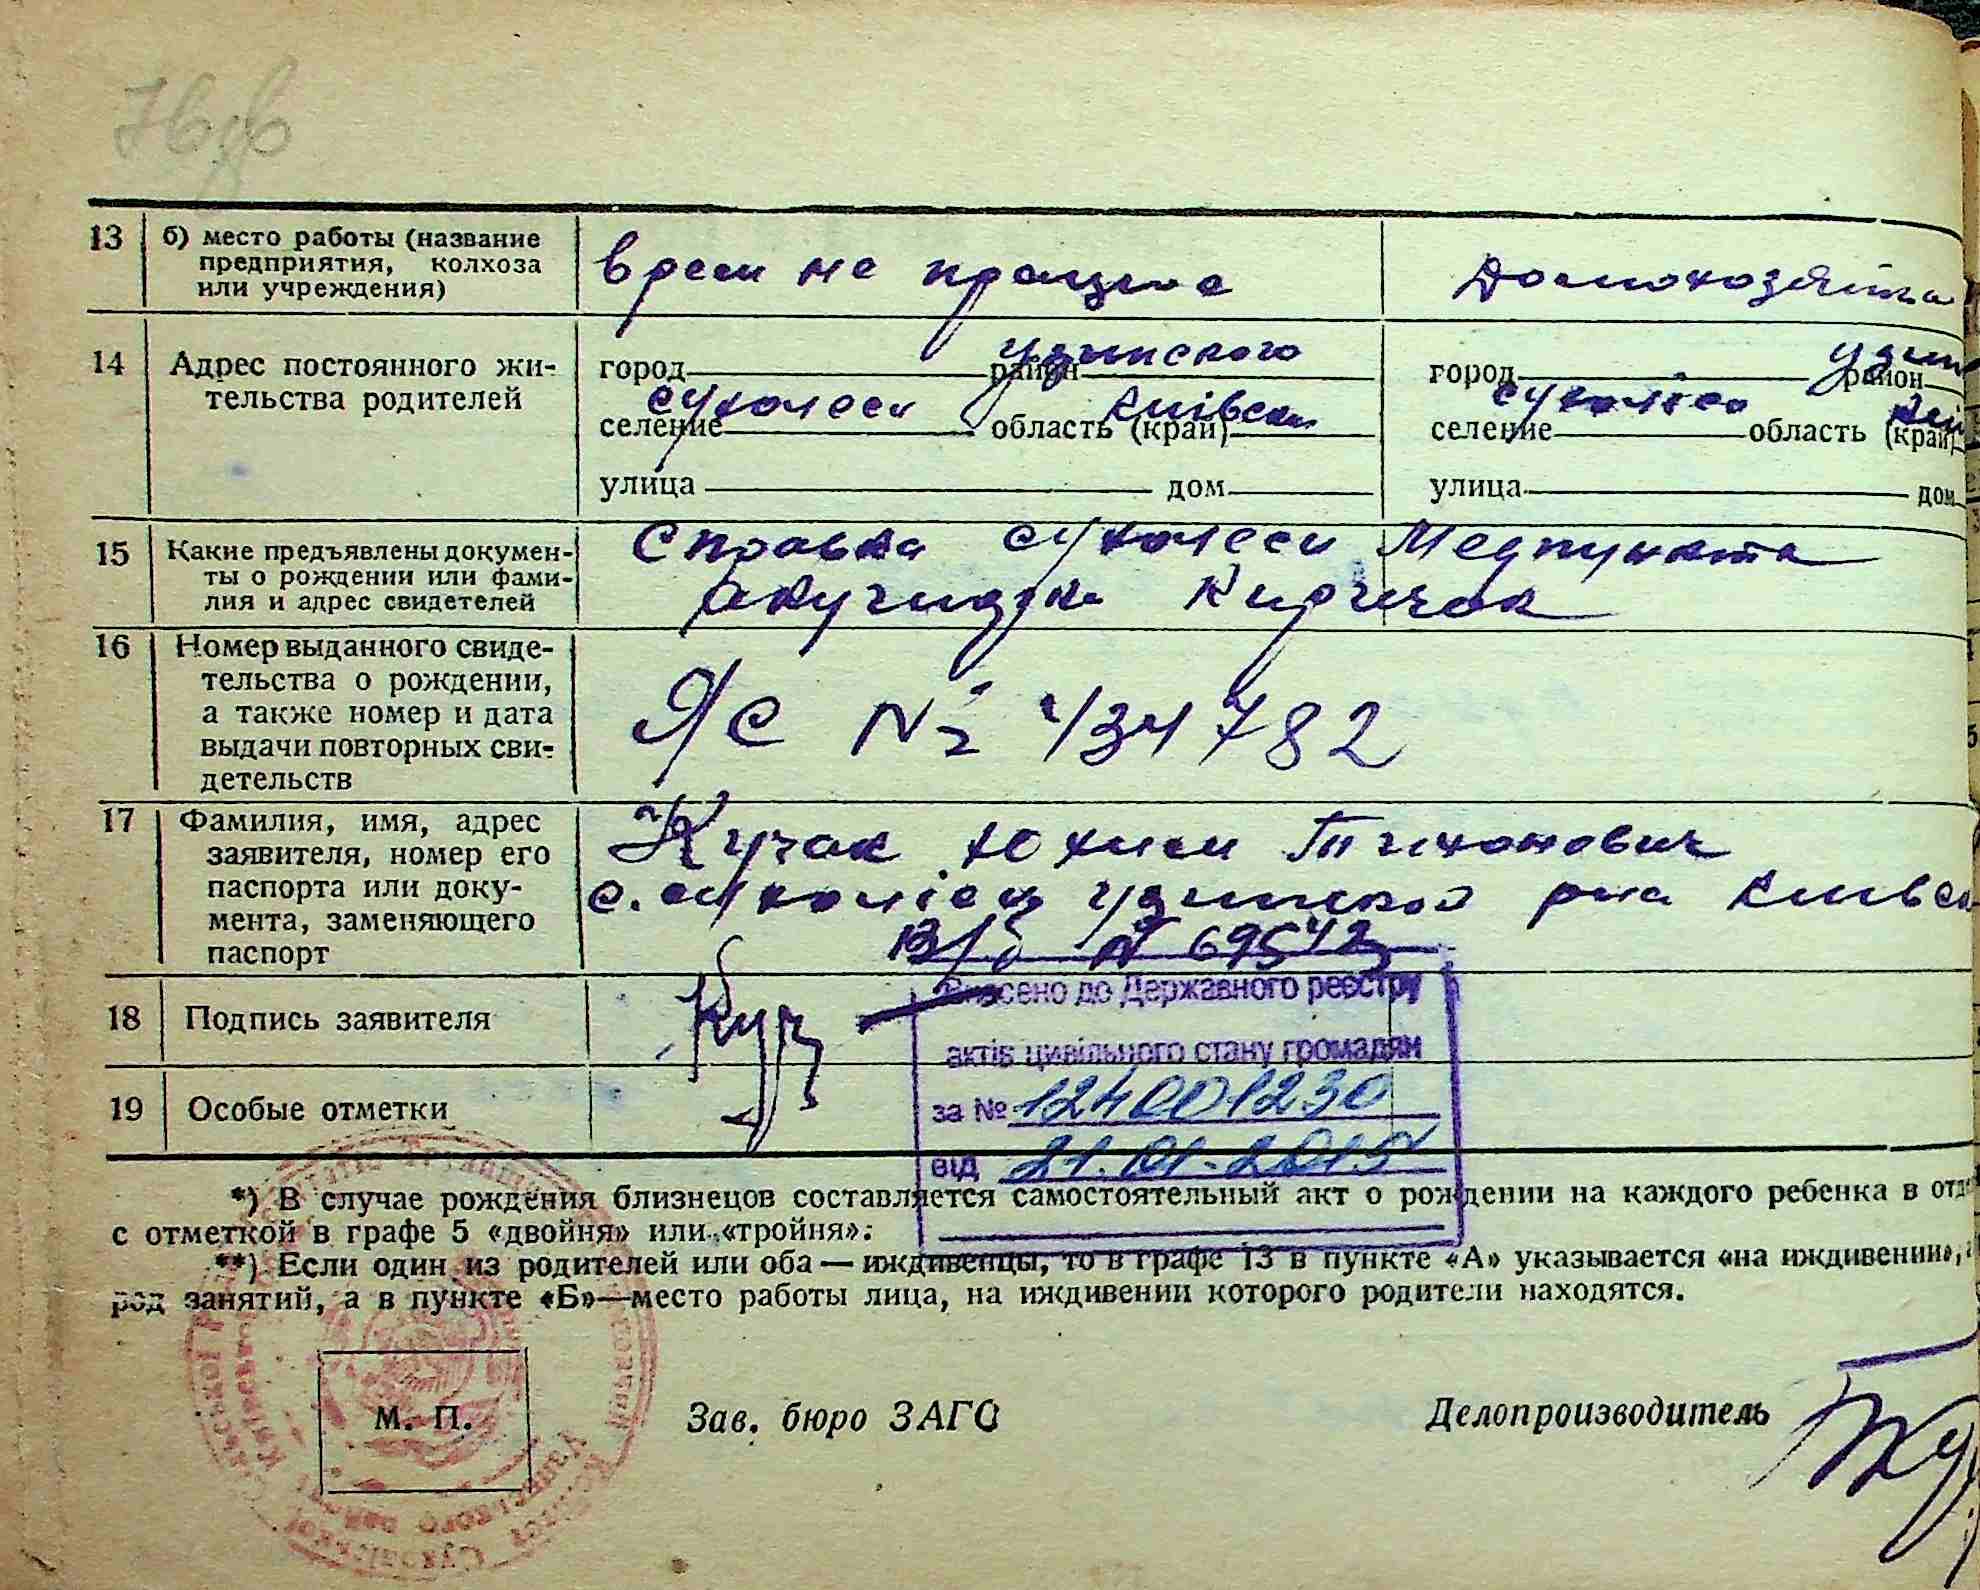 13 б) место работы (название
предприятия, колхоза
или учреждения)
врем не працює
Домохозяйка
14 Адрес постоянного жи-
тельства родителей
город район Узинского
селение Сухолеси область (край) Київськ
улица дом
город район Узин
селение Сухоліси область (край) Киї
улица дом
15 Какие предъявлены докумен-
ты о рождении или фами-
лия и адрес свидетелей
Справка Сухолеси Медпункта
акушерка Киричок
16 Номер выданного свиде-
тельства о рождении,
а также номер и дата
выдачи повторных сви-
детельств
ЯС № 434782
17 Фамилия, имя, адрес
заявителя, номер его
паспорта или доку-
мента, заменяющего
паспорт
Кучак Юхим Тихонович
с. Сухоліси Узинского р-на Київсь
В/б № 69542
18 Подпись заявителя
Куч
19 Особые отметки
Внесено до Державного реєстру
актів цивільного стану громадян
за № 124001230
від 21.01.2015
*) В случае рождения близнецов составляется самостоятельный акт о рождении на каждого ребенка в отд
с отметкой в графе 5 «двойня» или «тройня».
**) Если один из родителей или оба — иждивенцы, то в графе 13 в пункте «А» указывается «на иждивении»,
род занятий, а в пункте «Б»—место работы лица, на иждивении которого родители находятся.
М. П.
Зав. бюро ЗАГС
Делопроизводитель